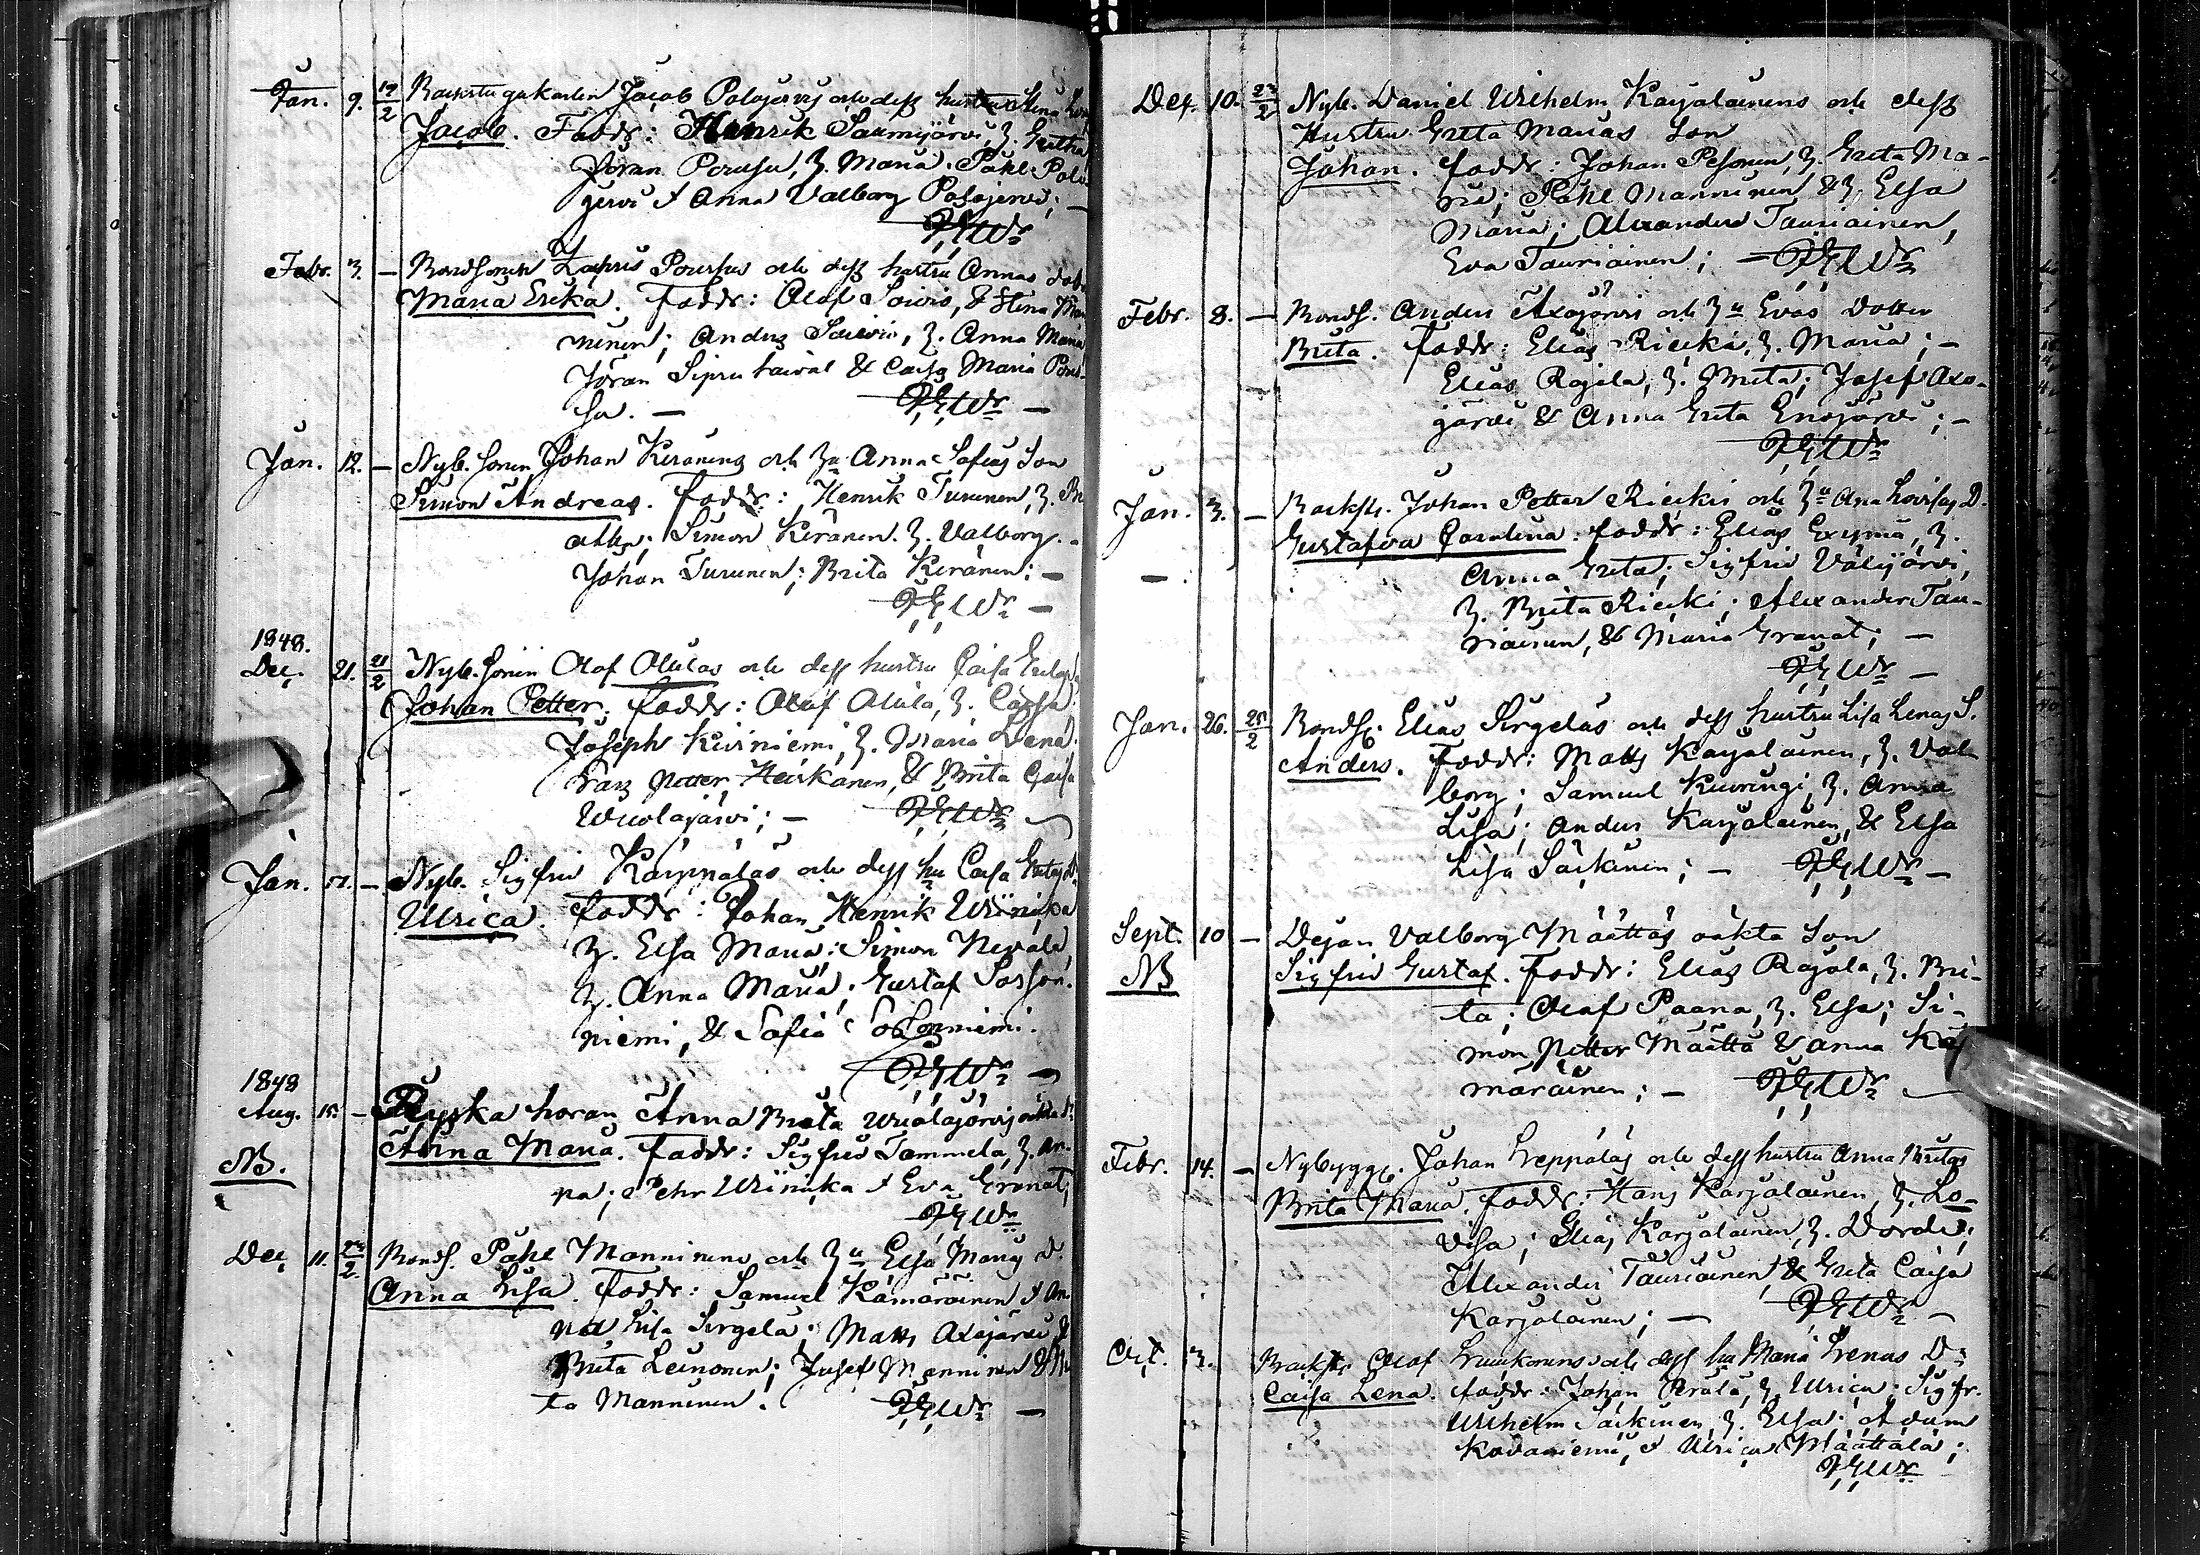 Jan. 9. 19/2 Backstugukarlen Jacob Polojervis och dess hustru Stina
Jacob. Faddr: Henrik Saumijärvi, H. Gretha
Jöran Porusu, H. Maria. Påhl Polo-
jervi & Anna Valborg Polojervi; —
Febr. 3. — Bondsonen Zachris Pousus och dess hustru Annas dotr
Maria Erika. Faddr: Olof Soivio, & Stina Man
ninen; Anders Soivio, H. Anna Maria
Jöran Siprutaival & Caisa Maria Pou-
su. —
Jan. 12. — Nyb. sonen Johan Keränens och Hu Anna Sofias Son
Simon Andreas. Faddr: Henrik Turunen, H. Be
atha; Simon Keränen. H. Valborg.
Johan Turunen; Brita Keränen; —
1848.
Dec. 21. 21/2 Nyb. sonen Olof Alulas och dess hustru Caisa
Johan Petter. Faddr: Olof Alula, H. Caisa
Joseph Kiviniemi, H. Maria Lena.
Lars Petter Heiskanen, & Brita Caisa
Wuolajärvi; —
Jan. 17. — Nyb. Sigfrid Karppalas och dess hu Caisa Gretas D.
Ulrica. Faddr: Johan Henrik Wiinikka
H. Elsa Maria; Simon Nevala,
H. Anna Maria. Gustaf Sosson-
niemi, & Sofia Sossonniemi.
1848
Aug. 15. — Ryska horan Anna Brita Wuolajärvis oäkta D:
NB. Anna Maria. Faddr: Sigfrid Tammela, H. An-
na; Pehr Wiinikka & Eva Granat;
Dec. 11. 22/2 Bonds. Påhl Manninens och Hu Elsa Marias D.
Anna Lisa. Faddr: Samuel Kämäräinen & An-
na Lisa Sirgelä; Matts Axojärvi &
Brita Leinonen; Josef Manninen & Bri
ta Manninen. —
Dec. 10. 23/2 Nyb. Daniel Wilhelm Karjalainens och dess
Hustru Greta Marias Son
Johan. Faddr: Johan Pesonen, H. Greta Ma-
ria; Påhl Manninen & H. Elsa
Maria; Alexander Tauriainen,
Eva Tauriainen; —
Febr. 8. — Bonds. Anders Axojärvis och Hu Evas dotter
Brita. Faddr: Elias Riecki, H. Maria; —
Elias Rajala, H. Brita; Josef Axo-
järvi & Anna Greta Enojärvi; —
Jan. 3. — Backst. Johan Petter Rieckis och Hu Ana Lovisas D.
Gustafva Carolina. Faddr: Elias H.
— Anna Greta; Sigfrid Välijärvi,
H. Brita Riecki; Alexander Tau-
riainen, & Maria Granat; —
Jan. 26. 25/2 Bonds. Elias Sirgeläs och dess hustru Lisa Lenas S.
Anders. Faddr: Matts Karjalainen, H. Val-
borg; Samuel Kurvingi, H. Anna
Lisa; Anders Karjalainen, & Elsa
Lisa Säikinen; — —
Sept. 10 — Dejan Valborg Määttäs oäkta Son
NB Sigfrid Gustaf. Faddr: Elias Rajala, H. Bri-
ta; Olof Paana, H. Elsa; Si-
mon Petter Määttä & Anna Kä-
märäinen; —
Febr. 14. — Nybygg. Johan Leppäläs och dess hustru Anna Britas
Brita Maria. Faddr: Hans Karjalainen, H. Lo-
visa; Elias Karjalainen, H. Dordi;
Alexander Tauriainen, & Greta Caisa
Karjalainen; — —
Oct. 3. Backst. Olof och dess hu Maria Lenas D:
Caisa Lena. Faddr: Johan Perälä, H. Ulrica; Sigfr.
Wilhelm Säikinen H. Elsa; Adam
Kovaniemi, & Ulrica Määttälä;